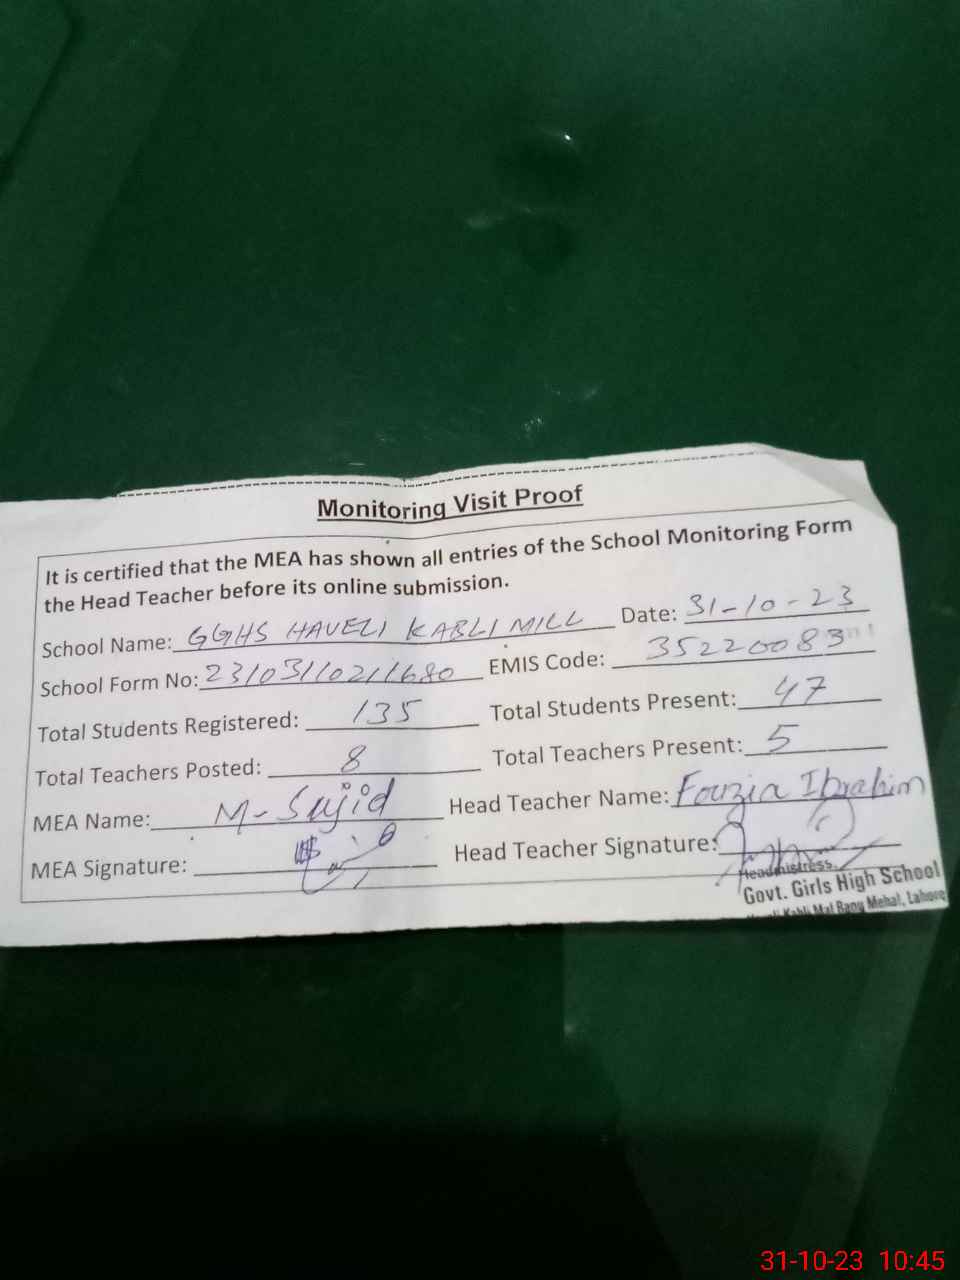 Monitoring Visit Proof
It is certified that the MEA has shown all entries of the School Monitoring Form
the Head Teacher before its online submission.
School Name: GGHS HAVELI KABLI MILL Date: 31-10-23
School Form No: 23103110211680 EMIS Code: 35220083
Total Students Registered: 135 Total Students Present: 47
Total Teachers Posted: 8 Total Teachers Present: 5
MEA Name: M-Sajid Head Teacher Name: Fouzia Ibrahim
MEA Signature: Head Teacher Signature:
Headmistress
Govt. Girls High School
Kabli Mal Rang Mehal, Lahore
31-10-23 10:45